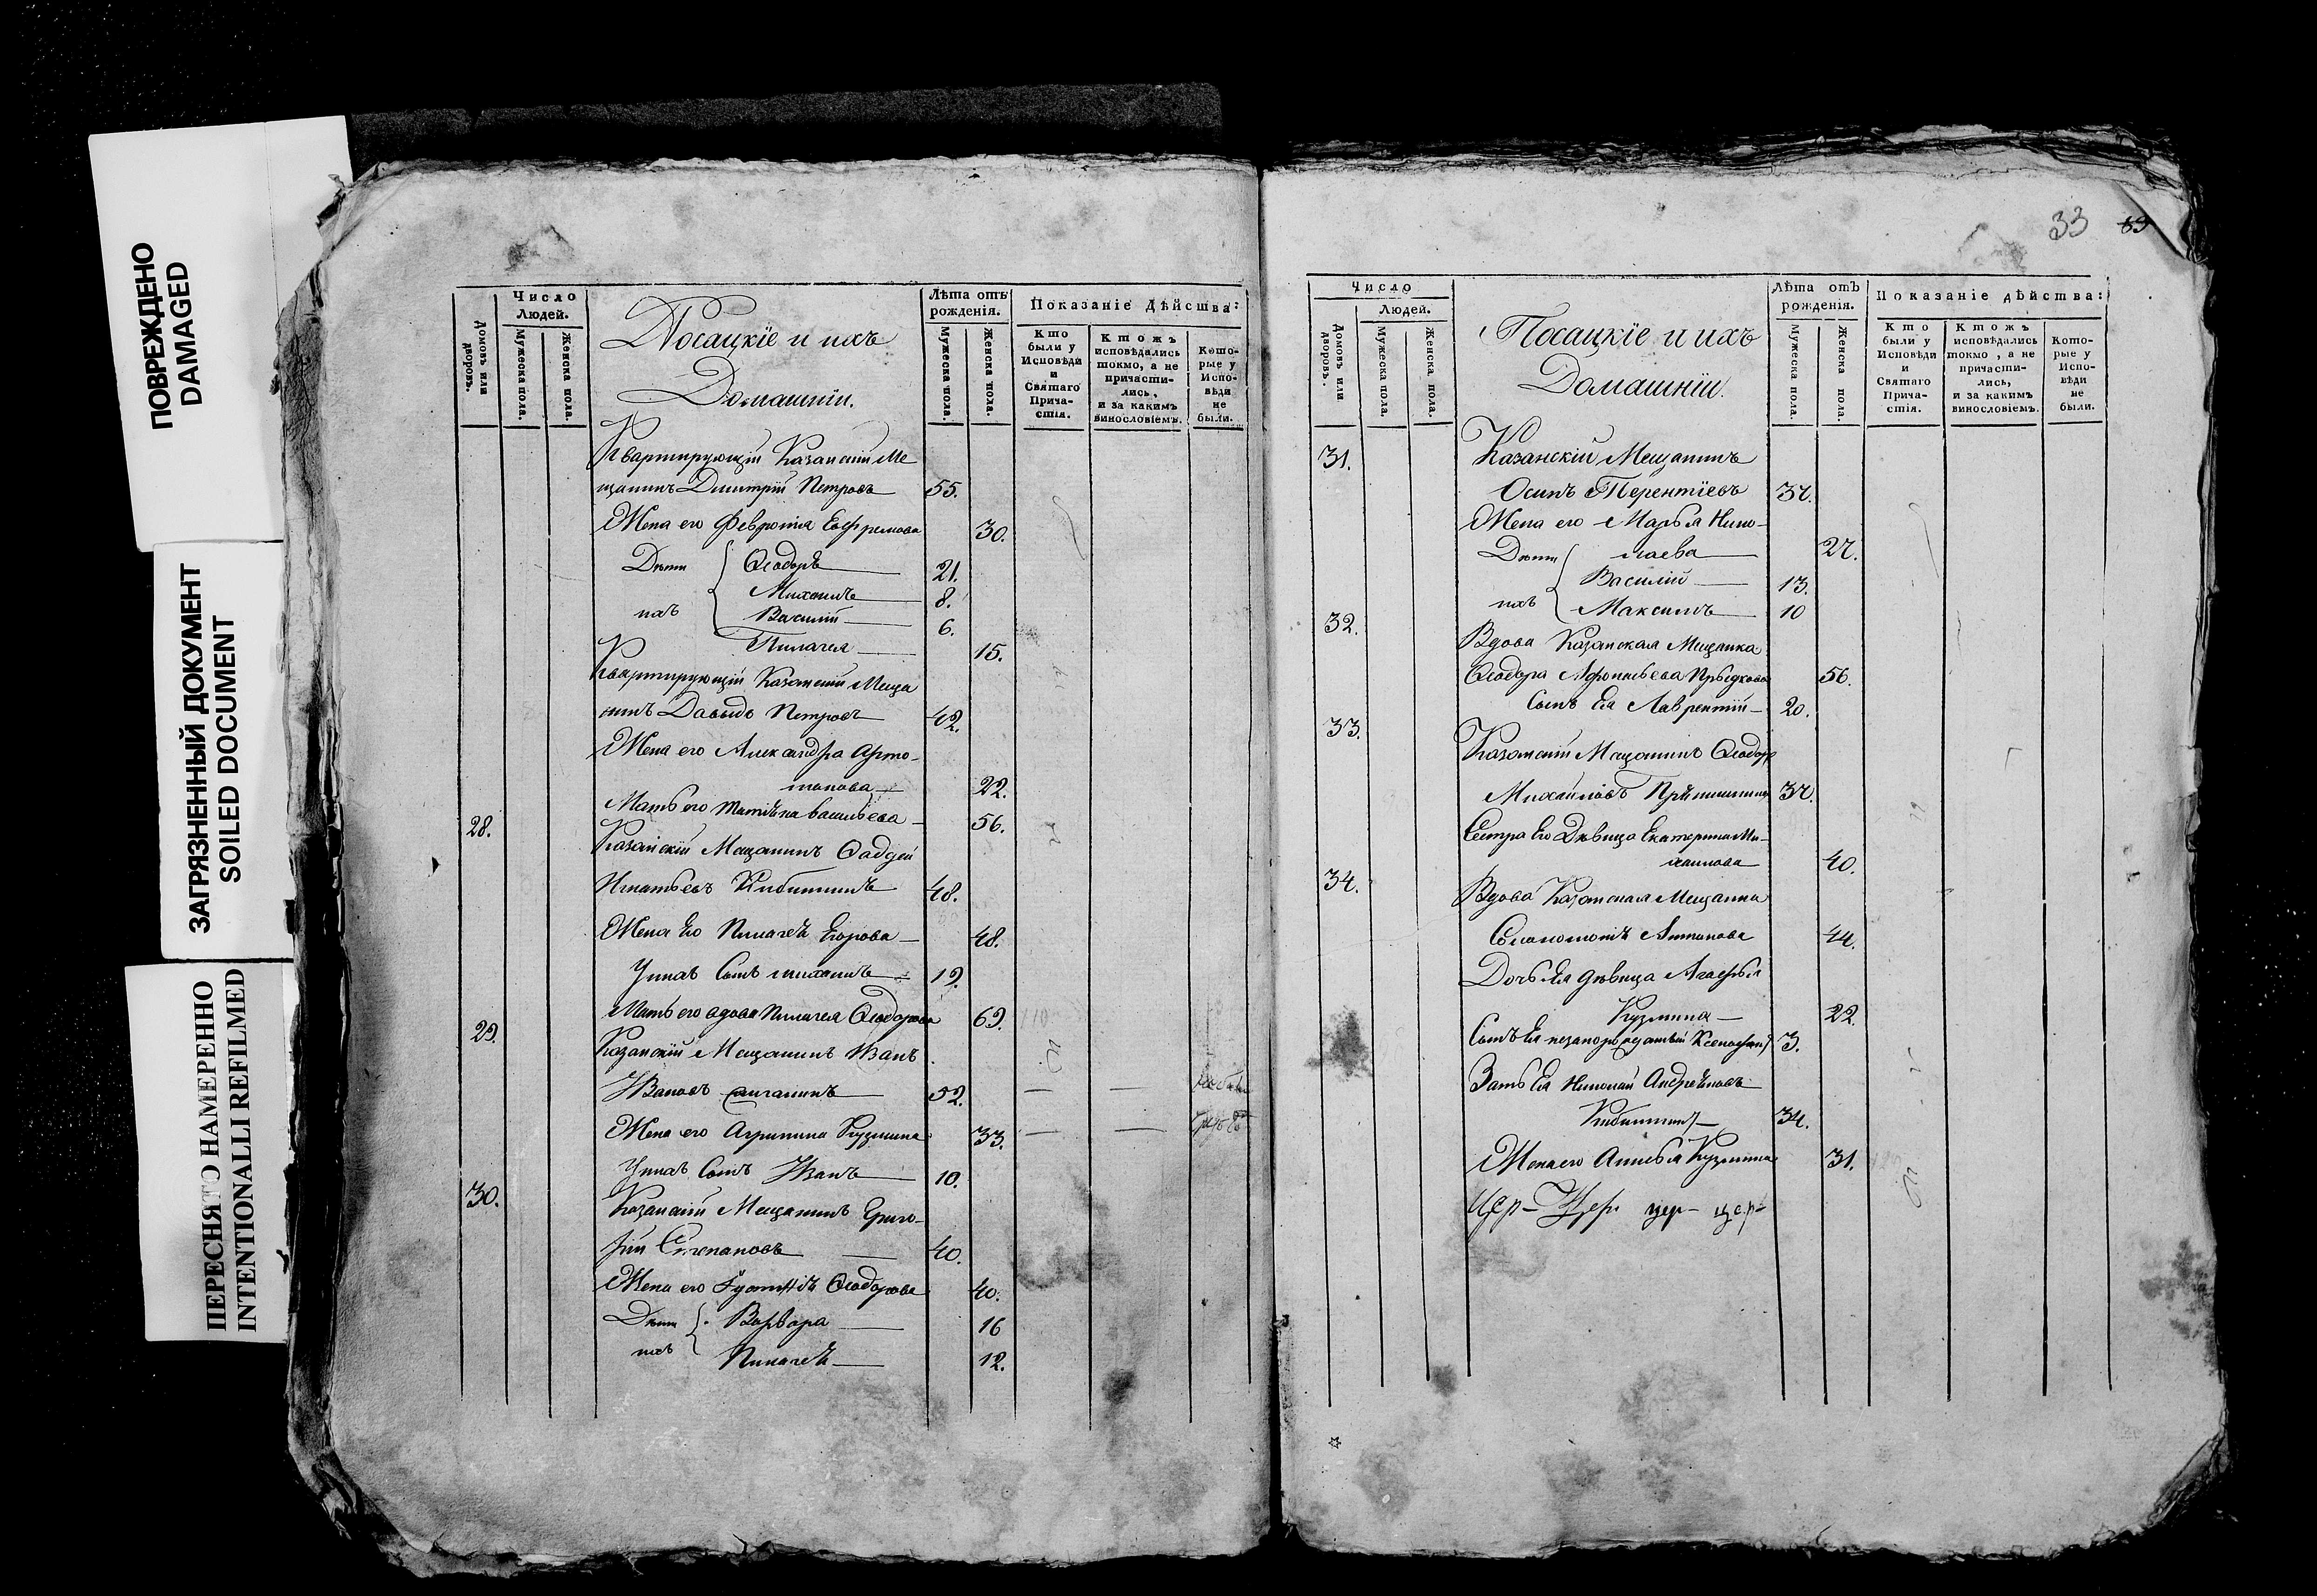 ПОВРЕЖДЕНО
DAMAGED
ЗАГРЯЗНЕННЫЙ ДОКУМЕНТ
SOILED DOCUMENT
ПЕРЕСНЯТО НАМЕРЕННО
INTENTIONALLI REFILMED
Число
Людей.
Домовъ или дворовъ.
Мужеска пола.
Женска пола.
Посацкіе и ихъ
Домашніи.
Лѣта отъ рожденія.
Мужеска пола.
Женска пола.
Показаніе дѣйства:
Кто были у Исповѣди и Святаго Прича-стія.
Ктожъ исповѣдались токмо, а не причасти-лись, и за какимъ винословіемъ.
Кото-рые у Испо-вѣди не были.
Квартирующій Казанскій Ме
щанинъ Дмитрій Петровъ 55.
Жена его Февронія Ефремова 30.
Дѣти Ѳеодоръ 21.
Михаилъ 8.
ихъ Василій 6.
Пилагея 15.
Квартирующій Казанскій Меща
нинъ Давыдъ Петровъ 42.
Жена его Александра Арто-
монова 22.
Мать его Матрѣна васильева 56.
28. Казанскій Мещанинъ Фаддей
Игнатьевъ 48.
Жена Его Пилагеѣ Егорова 48.
Унихъ Сынъ михаилъ 19.
Мать его вдова Пилагея Ѳеодорова 69.
29. Казанскій Мещанинъ Иванъ
Ивановъ 52.
Жена его Агрипина Кузмина 33.
Унихъ Сынъ Иванъ 10.
30. Казанскій Мещанинъ Григо-
рій Степановъ 40.
Жена его Ѳеодорова 40.
Дѣти Варвара 16
ихъ Пилагеѣ 12.
33 89
Число
Людей.
Домовъ или дворовъ.
Мужеска пола.
Женска пола.
Посацкіе и ихъ
Домашніи.
Лѣта отъ рожденія.
Мужеска пола.
Женска пола.
Показаніе дѣйства:
Кто были у Исповѣди и Святаго Прича-стія.
Ктожъ исповѣдались токмо, а не причасти-лись, и за какимъ винословіемъ.
Кото-рые у Испо-вѣди не были.
31. Казанскій Мещанинъ
Осипъ Терентіевъ 37.
Жена его Марья Нико-
Дѣти лаева 27.
Василій 13.
ихъ Максимъ 10
32. Вдова Казанская Мещанка
Ѳеодора Афонасьева 56.
Сынъ Ея Лаврентій 20.
33. Казанскій Мещанинъ Ѳеодоръ
Михайловъ 37.
Сестра Его Дѣвица Екатерина Ми-
хаилова 40.
34. Вдова Казанская Мещанка
Антонова 44.
Дочь Ея дѣвица Агафья
Кузмина 22.
Сынъ Ея незаконорожденный Ксенофонтъ 3.
Зять Ея Николай Андрѣяновъ
34.
Жена его Анисья Кузмина 31.
цер- Цер. цер- цер-